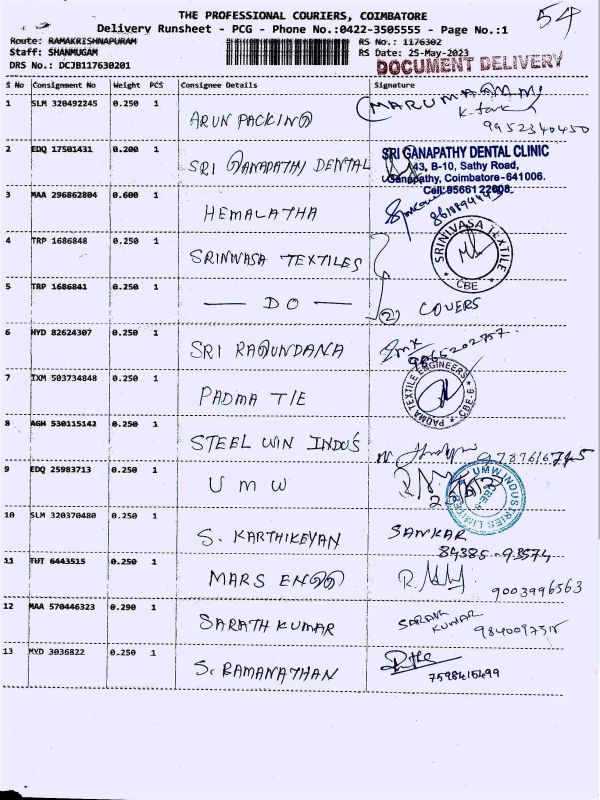 THE PROFESSIONAL COURIERS, COIMBATORE
54
Delivery Runsheet - PCG - Phone No.:0422-3505555 - Page No.:1
Route: RAMAKRISHNAPURAM RS No.: 1176302
Staff: SHANMUGAM RS Date: 25-May-2023
DRS No.: DCJB117630201 DOCUMENT DELIVERY
S No Consignment No Weight PCS Consignee Details Signature
1 SLM 320492245 0.250 1 ARUN PACKING
9952340450
2 EDQ 17501431 0.200 1 SRI GANAPATHY DENTAL
SRI GANAPATHY DENTAL CLINIC
43, B-10, Sathy Road,
Ganapathy, Coimbatore-641006.
Cell:95661 22608
3 MAA 296862804 0.600 1 HEMALATHA
4 TRP 1686848 0.250 1 SRINIVASA TEXTILES
SRINIVASA TEXTILE
CBE
5 TRP 1686841 0.250 1 — DO — 2 COVERS
6 HYD 82624307 0.250 1 SRI RAGUNDANA
7 IXM 503734848 0.250 1 PADMA T/E
PADMA TEXTILE ENGINEERS
CBE-6
8 AGH 530115142 0.250 1 STEEL WIN INDUS
9 EDQ 25983713 0.250 1 U M W
UMW INDUSTRIES LIMITED
10 SLM 320370480 0.250 1 S. KARTHIKEYAN SANKAR
84385-93574
11 TUT 6443515 0.250 1 MARS ENGG
9003996563
12 MAA 570446323 0.290 1 SARATH KUMAR SARATH KUMAR
13 MYD 3036822 0.250 1 S. RAMANATHAN
7598415499